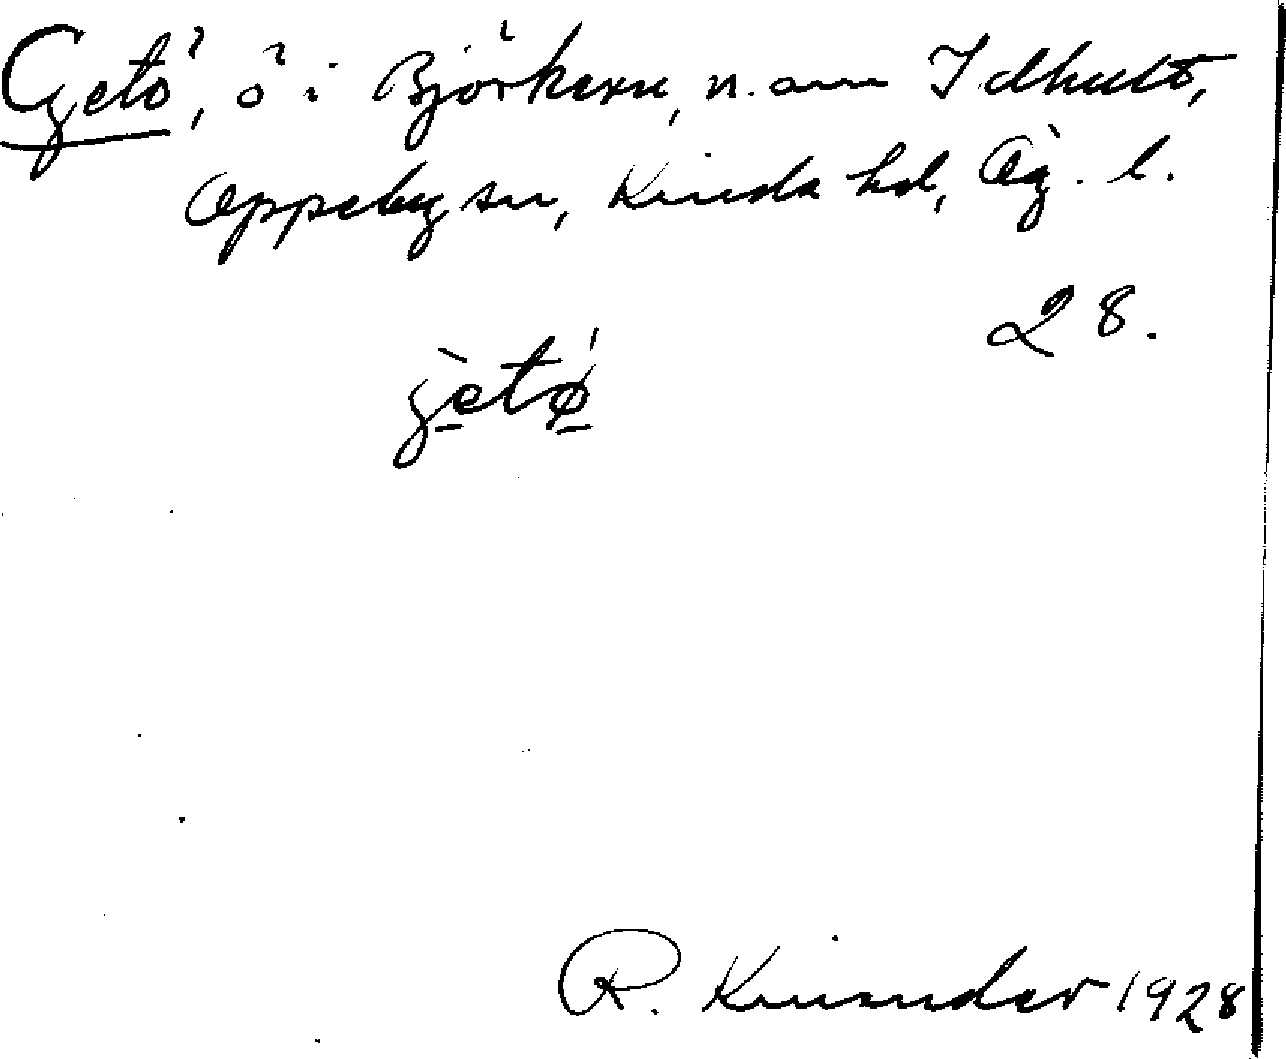 Getö, ö i Björkern, n. om Idhult,
Oppeby sn, Kinda hd, Ög. l.
28.
getø
R. Kinander 1928